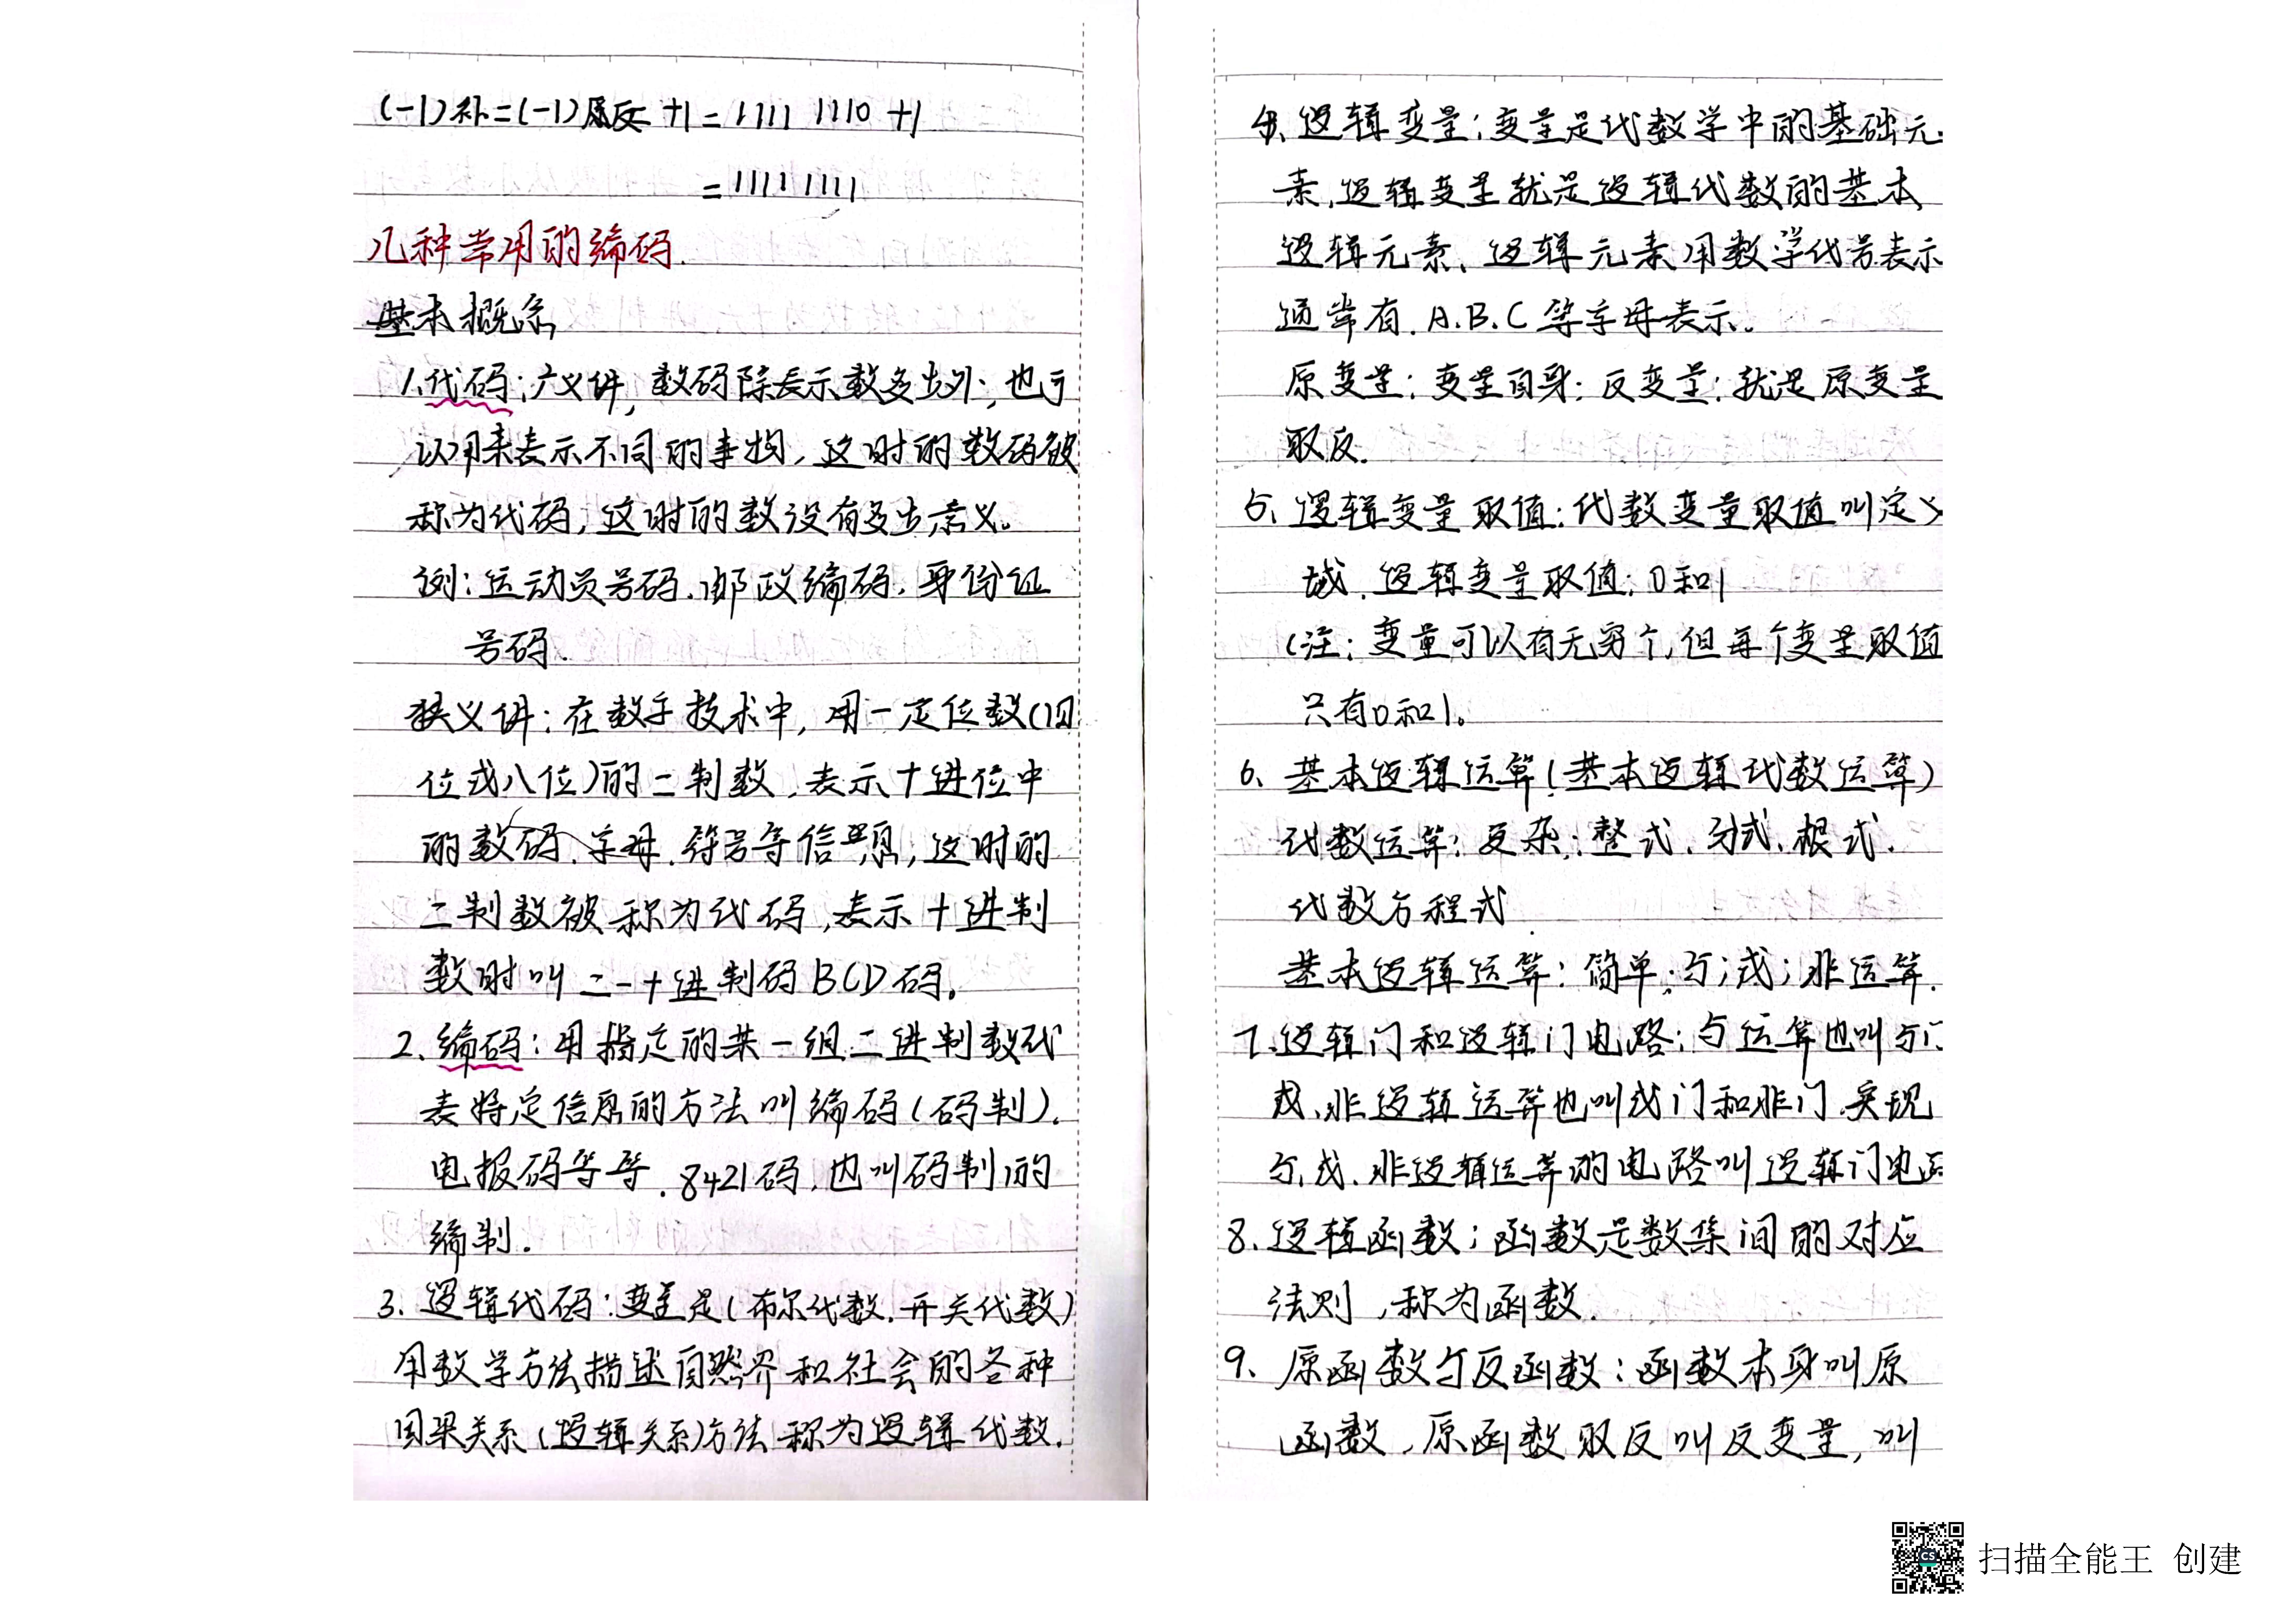 (-1)补=(-1)原反 +1 = 1111 1110 +1
= 1111 1111
几种常用的编码.
基本概念
1.代码:广义讲,数码除表示数多少外,也可
以用来表示不同的事物,这时的数码被
称为代码,这时的数没有多少意义。
例:运动员号码.邮政编码.身份证
号码.
狭义讲:在数字技术中,用一定位数(四
位或八位)的二制数,表示十进位中
的数码、字母.符号等信息,这时的
二制数被称为代码,表示十进制
数时叫二-十进制码BCD码。
2.编码:用指定的某一组二进制数代
表特定信息的方法叫编码(码制).
电报码等等.8421码.也叫码制的
编制.
3.逻辑代码:变量是(布尔代数.开关代数)
用数学方法描述自然界和社会的各种
因果关系(逻辑关系)方法称为逻辑代数.
4、逻辑变量:变量是代数学中的基础元
素,逻辑变量就是逻辑代数的基本
逻辑元素、逻辑元素用数学代号表示
通常有.A.B.C等字母表示.
原变量:变量自身;反变量:就是原变量
取反.
5、逻辑变量取值:代数变量取值叫定义
域.逻辑变量取值:0和1
(注:变量可以有无穷个,但每个变量取值
只有0和1。
6、基本逻辑运算(基本逻辑代数运算)
代数运算:复杂:整式、分式、根式.
代数方程式
基本逻辑运算:简单:与;或;非运算.
7.逻辑门和逻辑门电路:与运算也叫与门
或、非逻辑运算也叫或门和非门.实现
与,或.非逻辑运算的电路叫逻辑门电路
8.逻辑函数:函数是数集间的对应
法则,称为函数.
9、原函数与反函数:函数本身叫原
函数.原函数取反叫反变量,叫
扫描全能王 创建